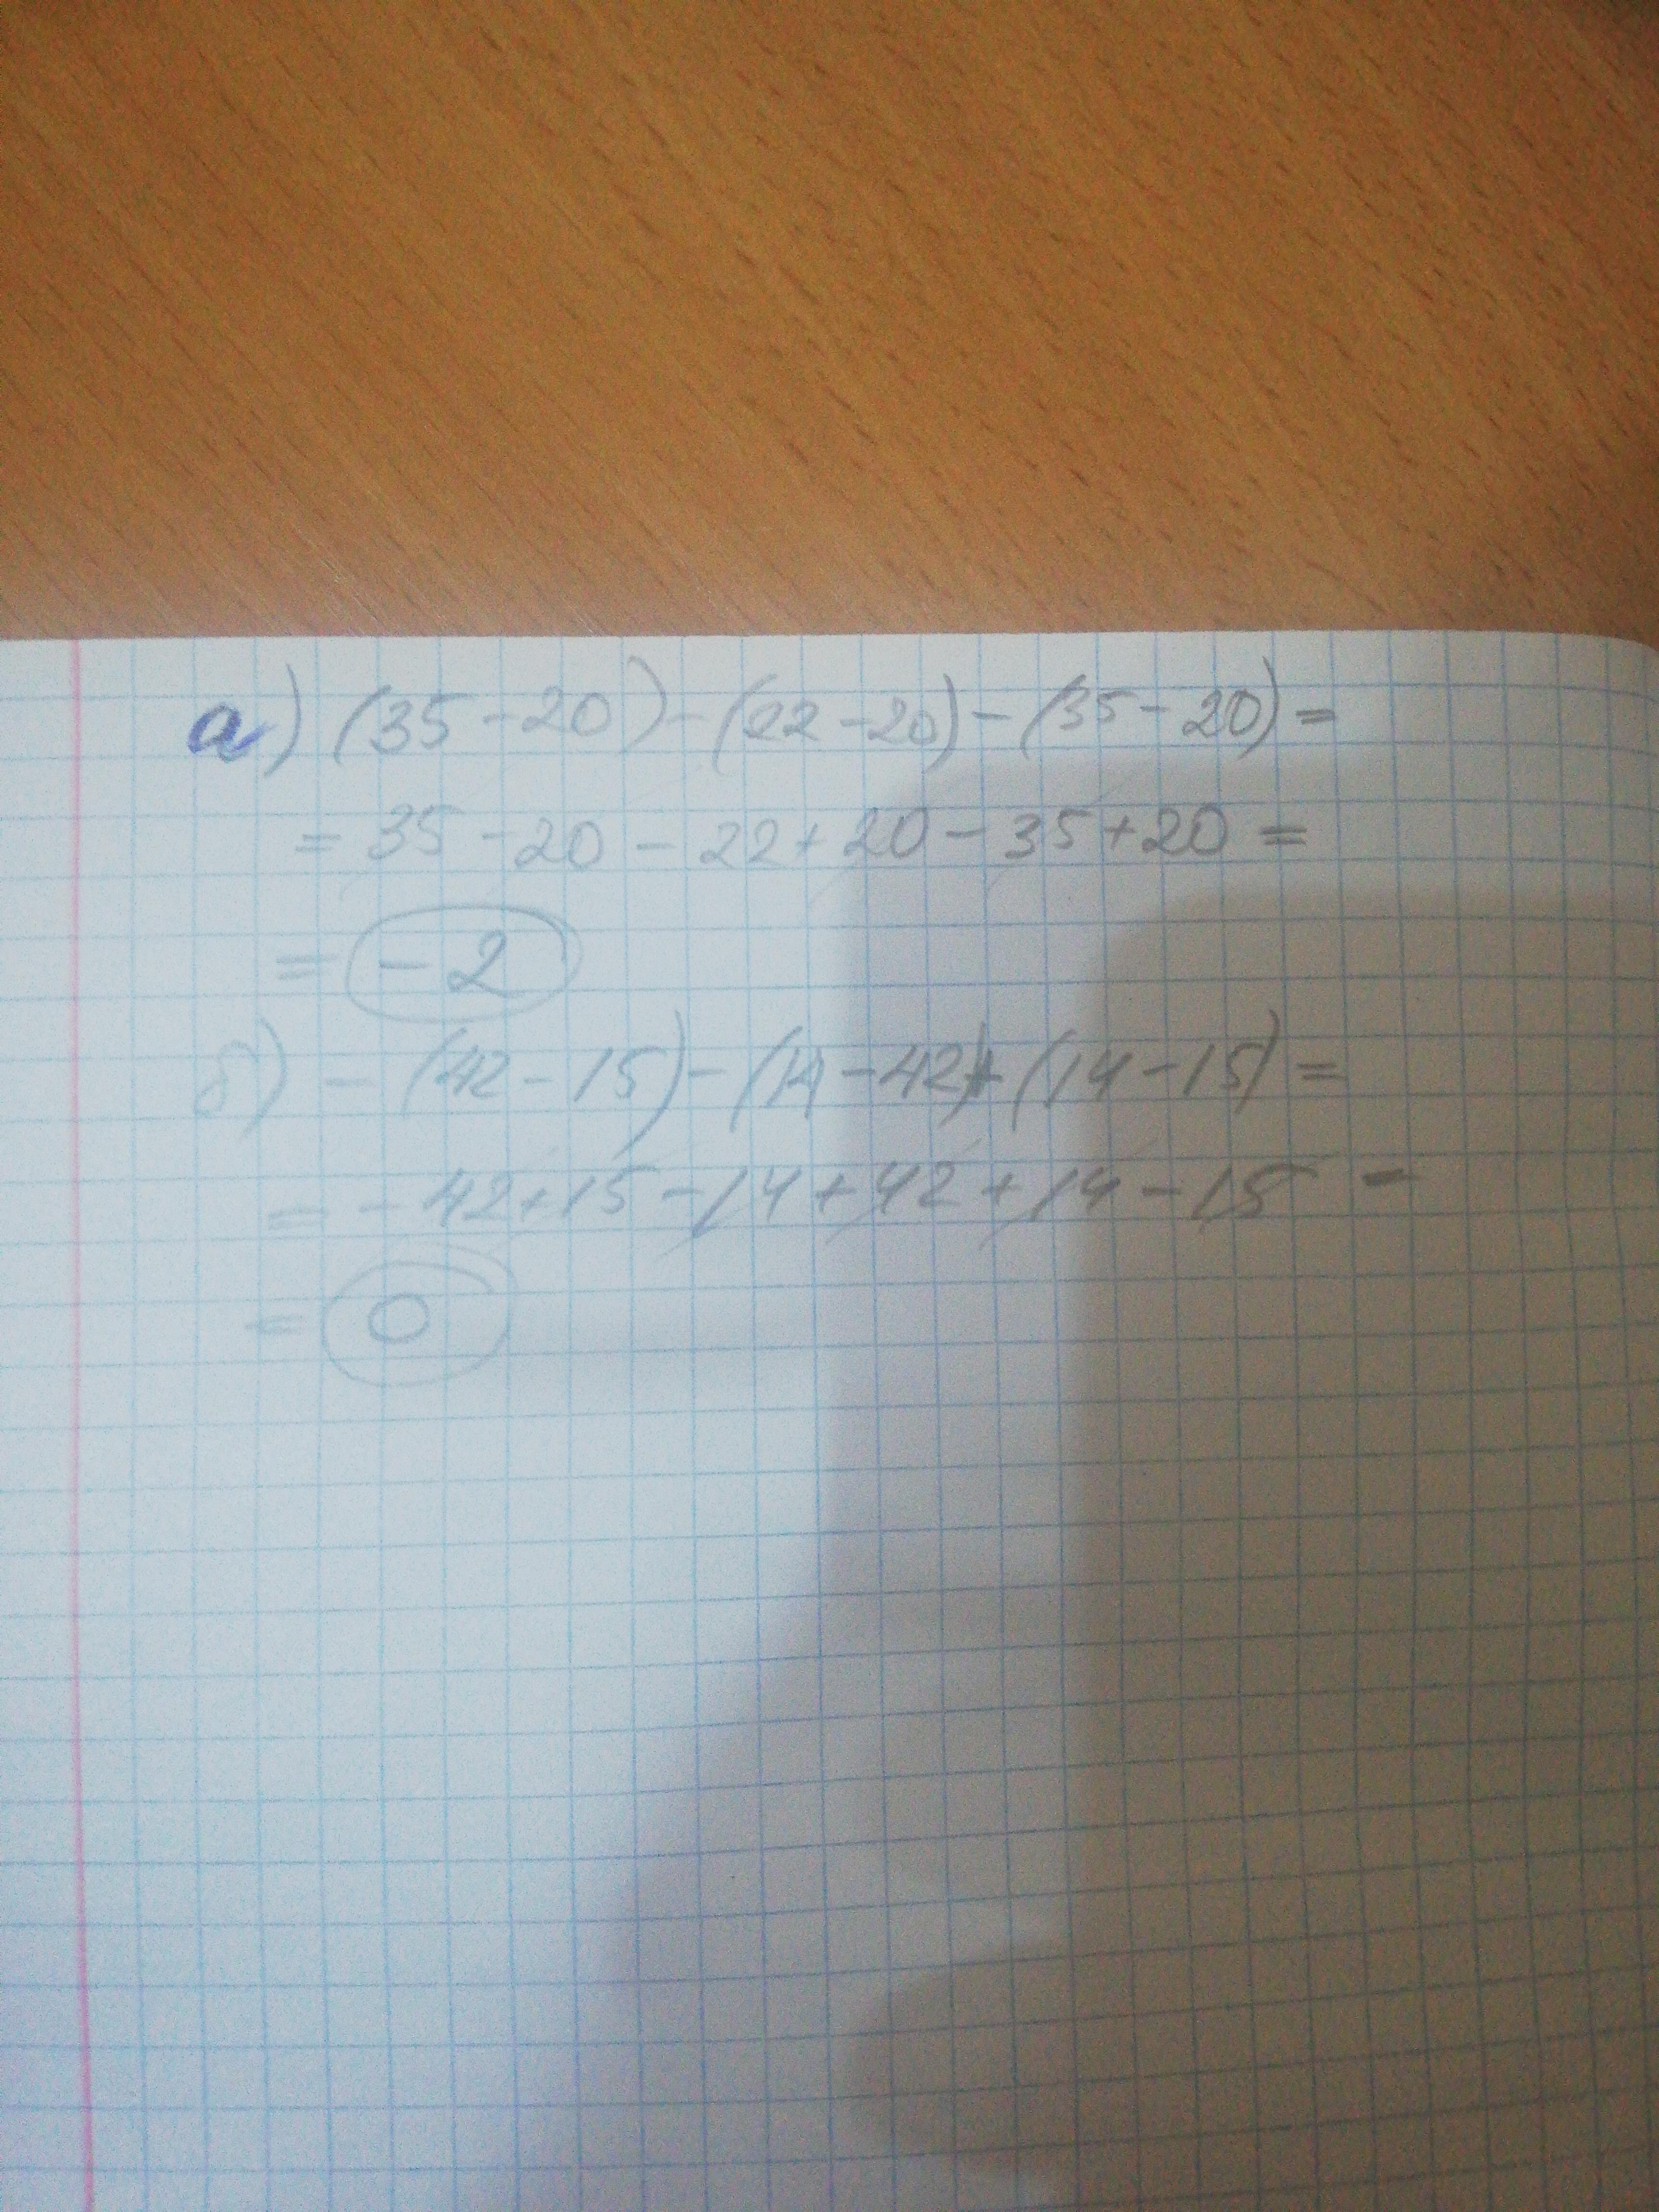 а) (35-20)-(22-20)-(35-20)=
= 35-20-22+20-35+20=
= -2
б) -(42-15)-(14-42)+(14-15)=
= -42+15-14+42+14-15 =
= 0